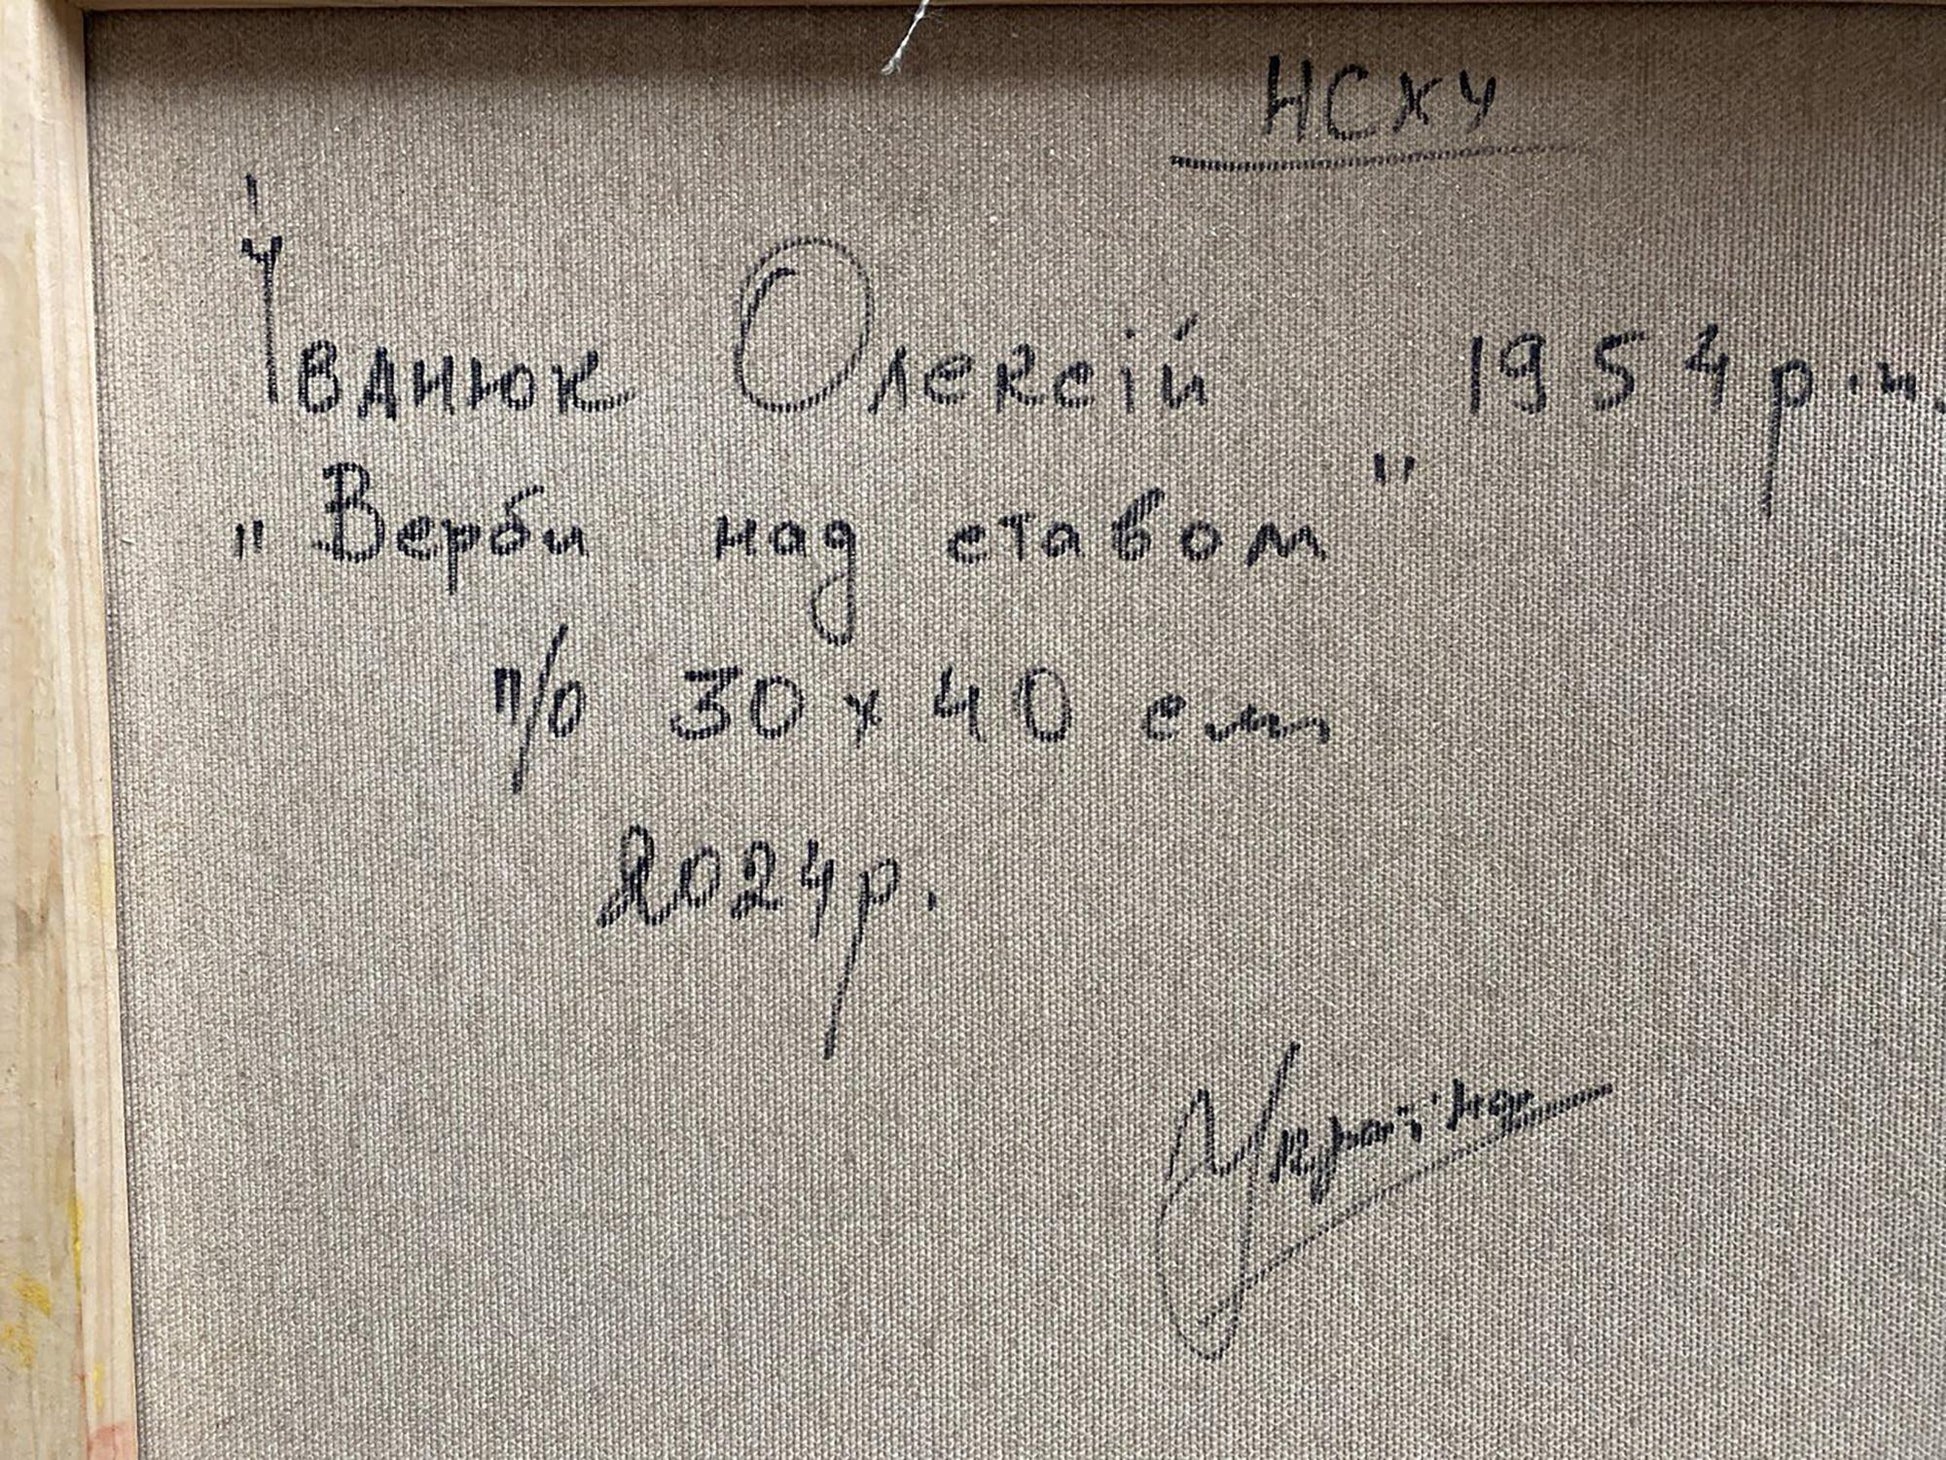 НСХУ
Іванюк Олексій 1954 р.н.
"Верби над ставом"
п/о 30 х 40 см
2024 р.
Україна